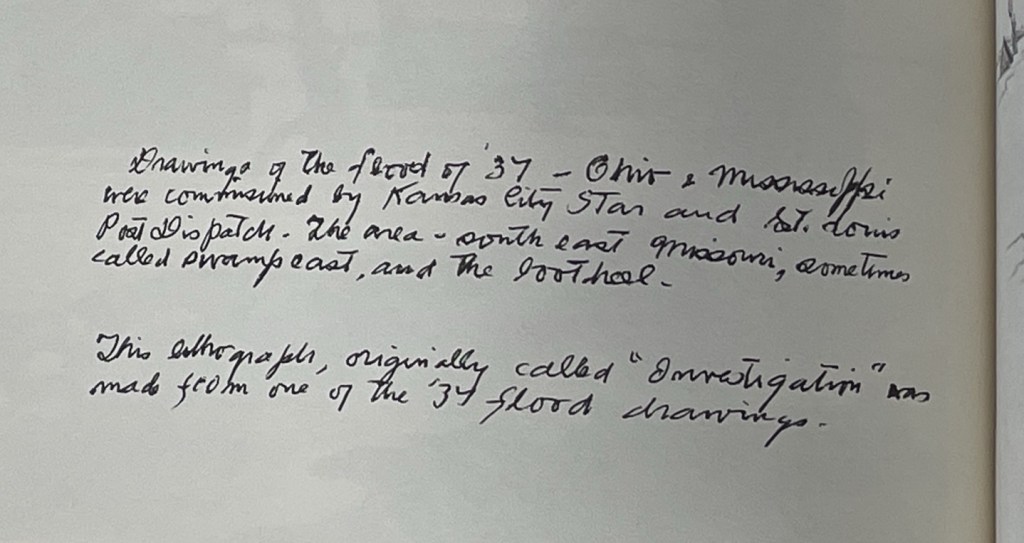 Drawings of the flood of '37 - Ohio & Mississippi
were commissioned by Kansas City Star and St. Louis
Post Dispatch. The area - south east Missouri, sometimes
called swamp east, and the bootheel.
This lithograph, originally called "Investigation" was
made from one of the '37 flood drawings.